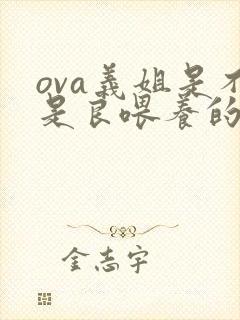 ova義姐是不
是良喂養的
金志宇